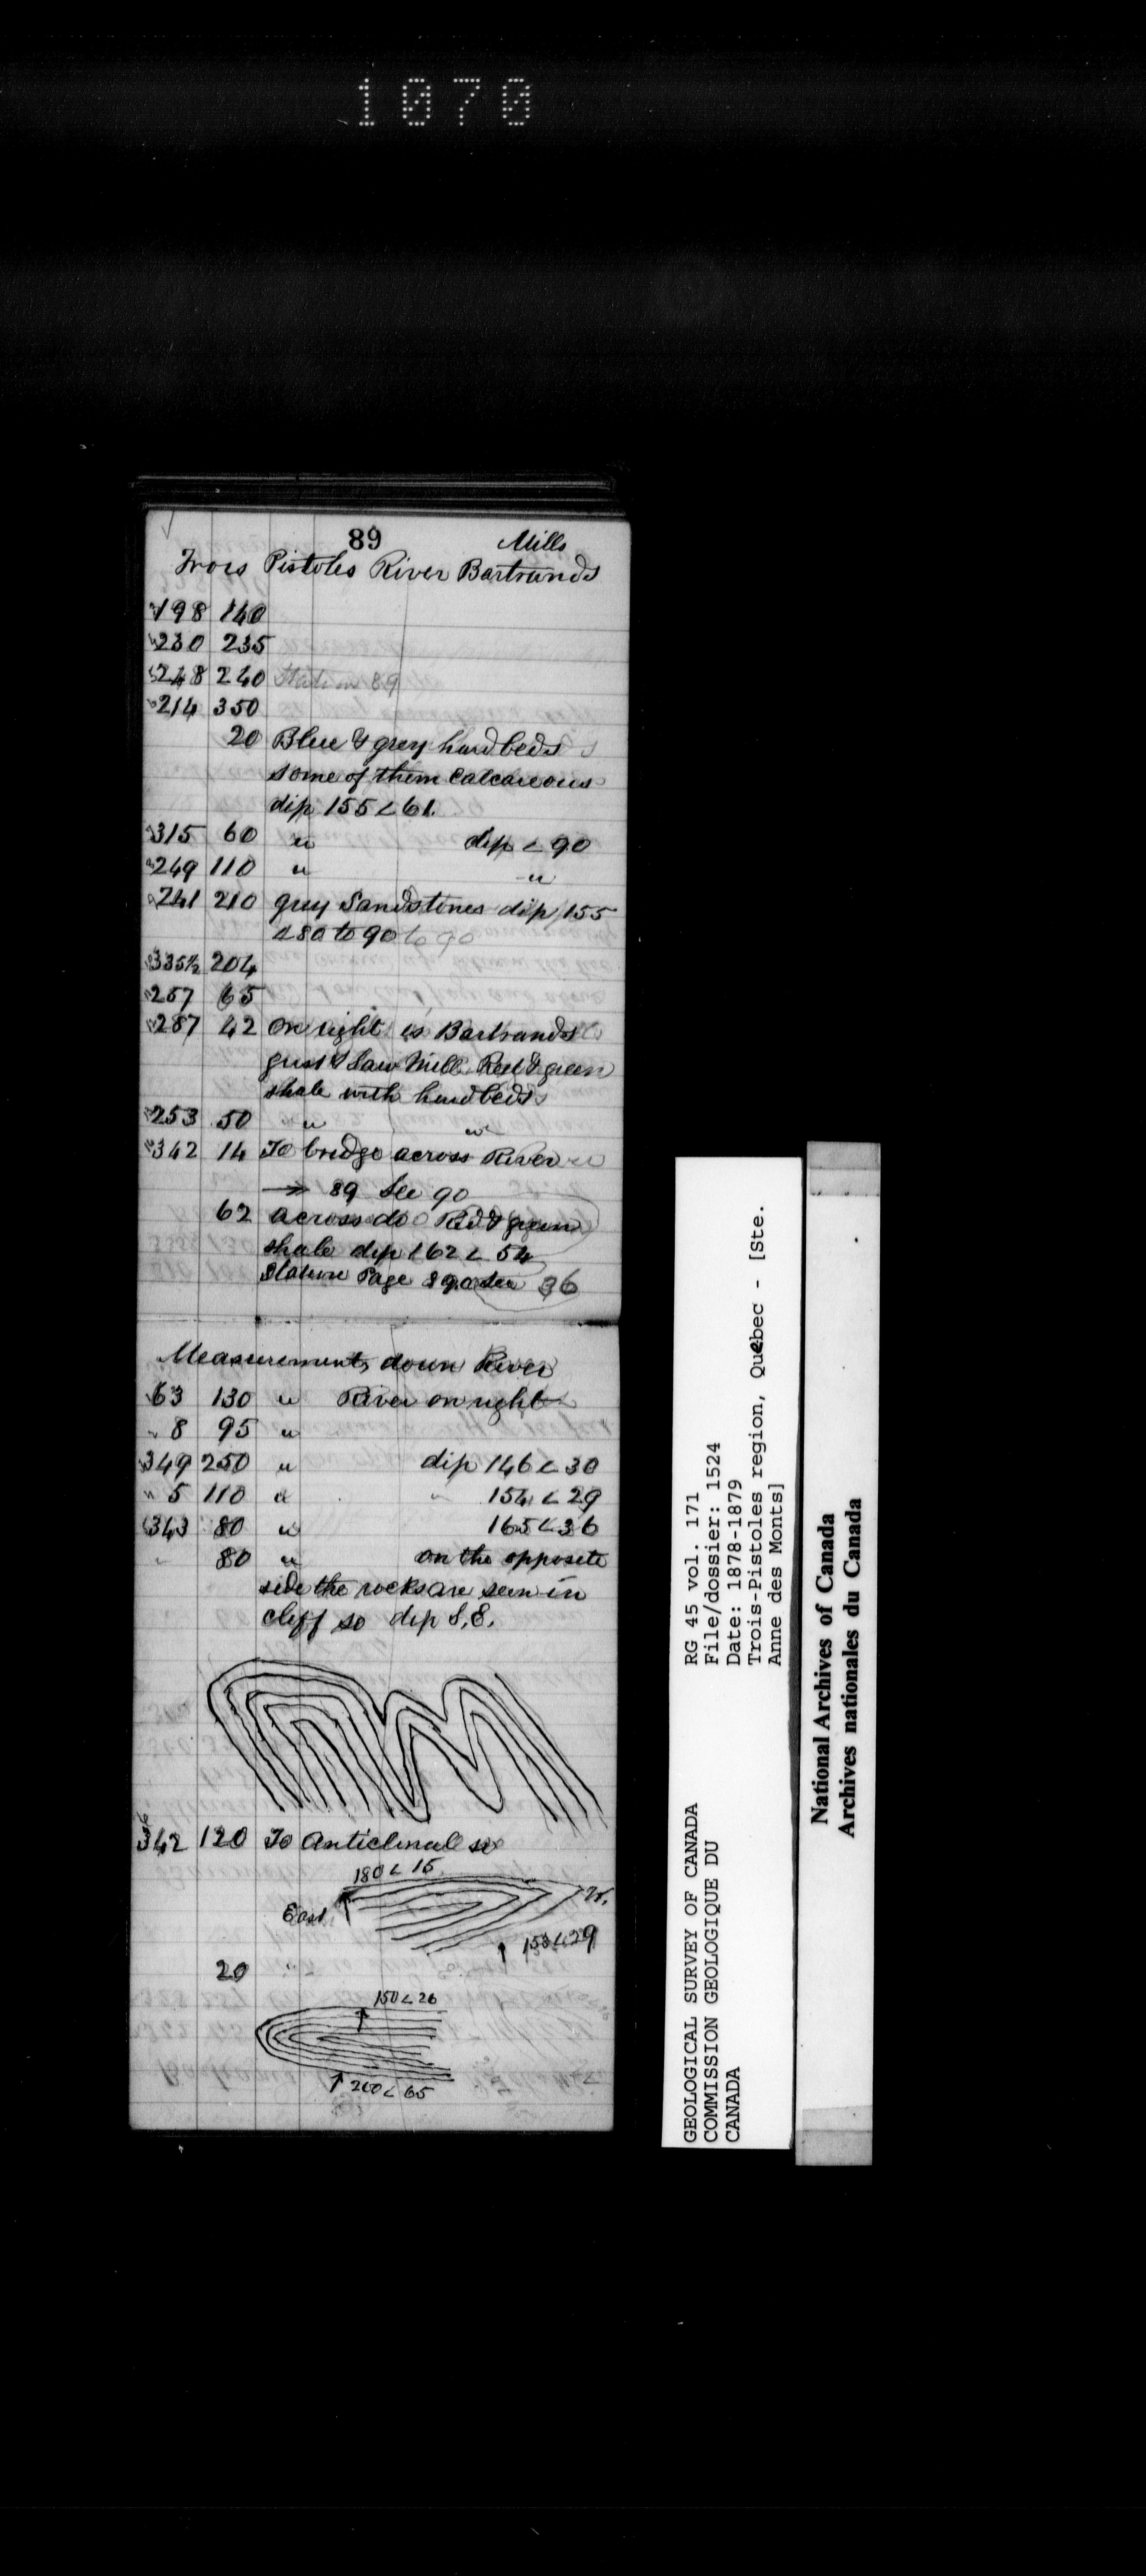 1070
89
Mills
Trois Pistoles River Bartrands
198 140
230 235
248 240 Station 89
214 350
20 Blue & grey hard beds
some of them Calcareous
dip 155 < 61.
315 60 " dip < 90
249 110 " "
241 210 grey Sandstones dip 155
< 80 to 90 to 90
335½ 204
257 65
287 42 On right is Bartrands
grist & Saw Mill Red & green
shale with hard beds
253 50 " "
342 14 To bridge across River
→ 89 See 90
62 across do Red & green
shale dip 162 < 54
Station Page 89 See 36
Measurements down River
63 130 " River on right
8 95 "
349 250 " dip 146 < 30
5 110 " " 154 < 29
343 80 " 165 < 36
80 " on the opposite
side the rocks are seen in
cliff so dip S.E.
342 120 To Anticlinal so
180 < 15
East W.
153 < 29
20 "
150 < 26
200 < 65
GEOLOGICAL SURVEY OF CANADA
COMMISSION GEOLOGIQUE DU
CANADA
RG 45 vol. 171
File/dossier: 1524
Date: 1878-1879
Trois-Pistoles region, Quebec - [Ste.
Anne des Monts]
National Archives of Canada
Archives nationales du Canada